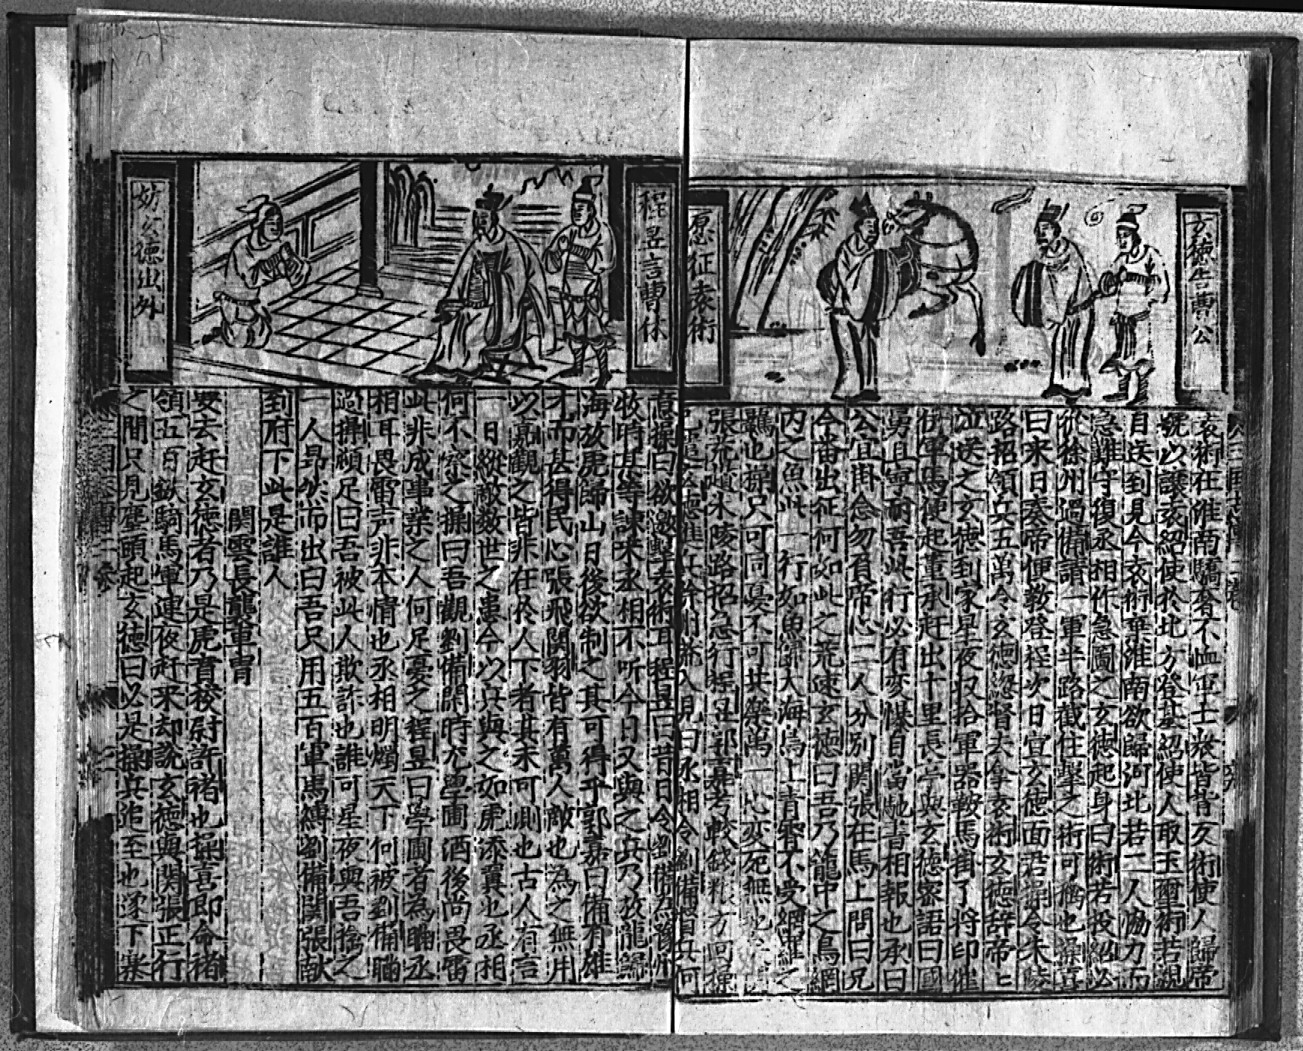 玄德告曹公
愿征袁術
袁術在淮南驕奢不恤軍士衆皆背反術使人歸帝
號以讓袁紹使於北方登基紹使人取玉璽術若親
自送到見今袁術棄淮南欲歸河北若二人恊力而
急難守復丞相作急圖之玄德起身曰術若投紹必
從徐州過備請一軍半路截住擊之術可擒也操喜
曰來日奏帝便教登程次日宣玄德面君操令朱陵
路招領兵五萬令玄德緫督去拿袁術玄德辞帝〻
泣送之玄德到家星夜収拾軍器鞍馬掛了將印催
併軍馬便起董承赶出十里長亭與玄德密語曰國
舅且寧耐吾此行必有変惨自當馳書相報也承曰
公宜掛念勿有帝心二人分別関張在馬上問曰兄
今畨出征何如此之荒速玄德曰吾乃籠中之鳥網
内之魚此一行如魚歸大海鳥上青霄不受網羅之
羈也操只可同憂不可共樂萬一心変死無
張荒嗔朱陵路招急行程昱郭嘉考較錢粮方回操
入見曰丞相令劉備督兵何
程昱言曹休
妨公德出外
意操曰欲邀擊袁術耳程昱曰昔日令劉備為豫州
牧時某等諌來丞相不听今日又與之兵乃放龍歸
海放虎歸山日後欲制之其可得乎郭嘉曰備有雄
才而甚得民心張飛関羽皆有萬人敵也為之無用
以嘉觀之皆非在於人下者其末可測也古人有言
一日縱敵数世之患今以兵與之如虎添翼也丞相
何不察之操曰吾觀劉備閑時尤學圃酒後尚畏雷
此非成事業之人何足憂之程昱曰學圃者為瞞丞
相耳畏雷声非本情也丞相明燭天下何被劉備瞞
過操頓足曰吾被此人欺詐也誰可星夜與吾擒之
一人昂然而出曰吾只用五百軍馬縛劉備関張献
到府下此是誰人
関雲長襲車冑
要去赶玄德者乃是虎賁校尉許褚也操喜即命褚
領五百鉄騎馬軍連夜赶來却說玄德與関張正行
之間只見塵頭起玄德曰必是操兵追至也遂下寨